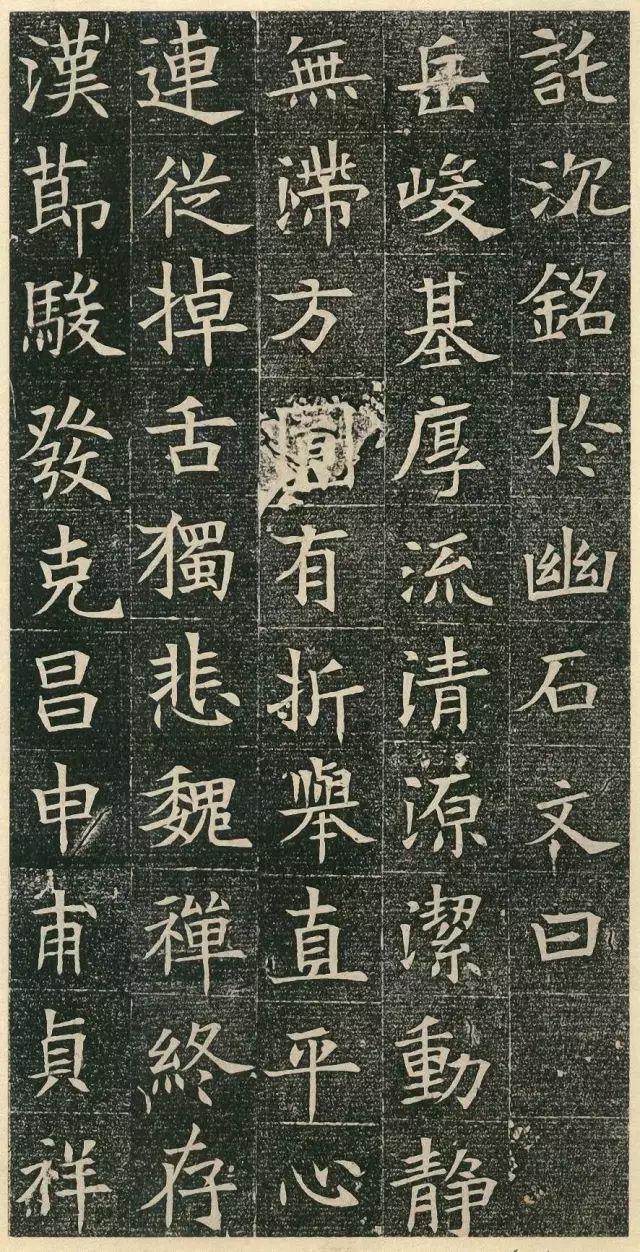 託沉銘於幽石文曰
岳峻基厚流清源潔動静
無滯方圓有折舉直平心
連從掉舌獨悲魏禪終存
漢莭駿發克昌申甫貞祥